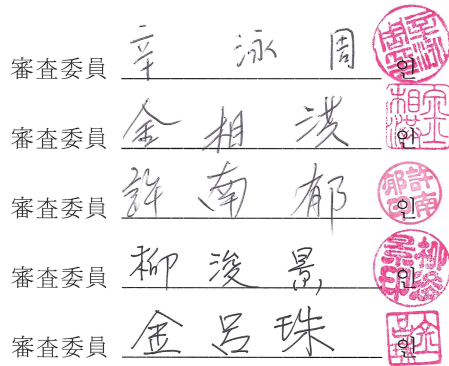 審査委員 辛泳周 인
審査委員 金相洪 인
審査委員 許南郁 인
審査委員 柳浚景 인
審査委員 金呂珠 인